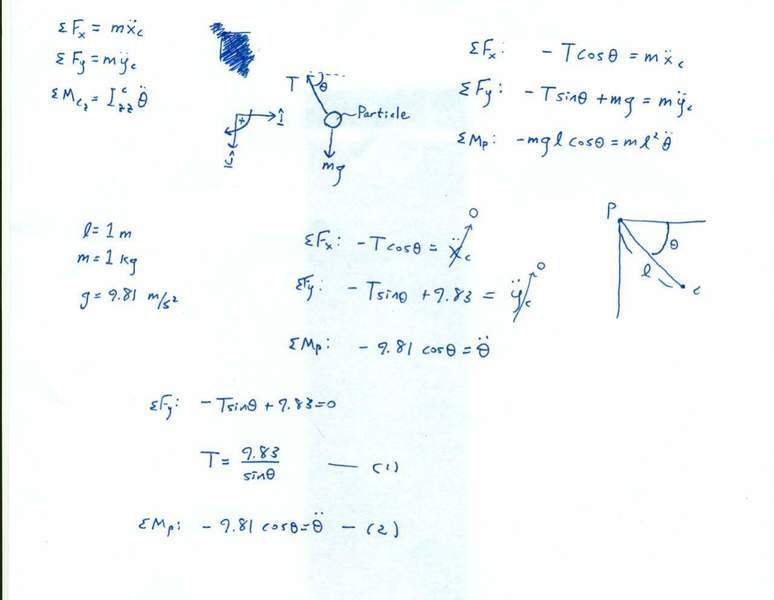 ΣFx = mẍc
ΣFy = mÿc
ΣMcz = I^c_zz θ̈
T
θ
Particle
+
î
ĵ
mg
ΣFx: -Tcosθ = mẍc
ΣFy: -Tsinθ + mg = mÿc
ΣMp: -mglcosθ = ml²θ̈
l = 1 m
m = 1 kg
g = 9.81 m/s²
ΣFx: -Tcosθ = ẍc 0
ΣFy: -Tsinθ + 9.83 = ÿc 0
ΣMp: -9.81 cosθ = θ̈
P
θ
l
c
ΣFy: -Tsinθ + 9.83 = 0
T = 9.83/sinθ — (1)
ΣMp: -9.81 cosθ = θ̈ — (2)